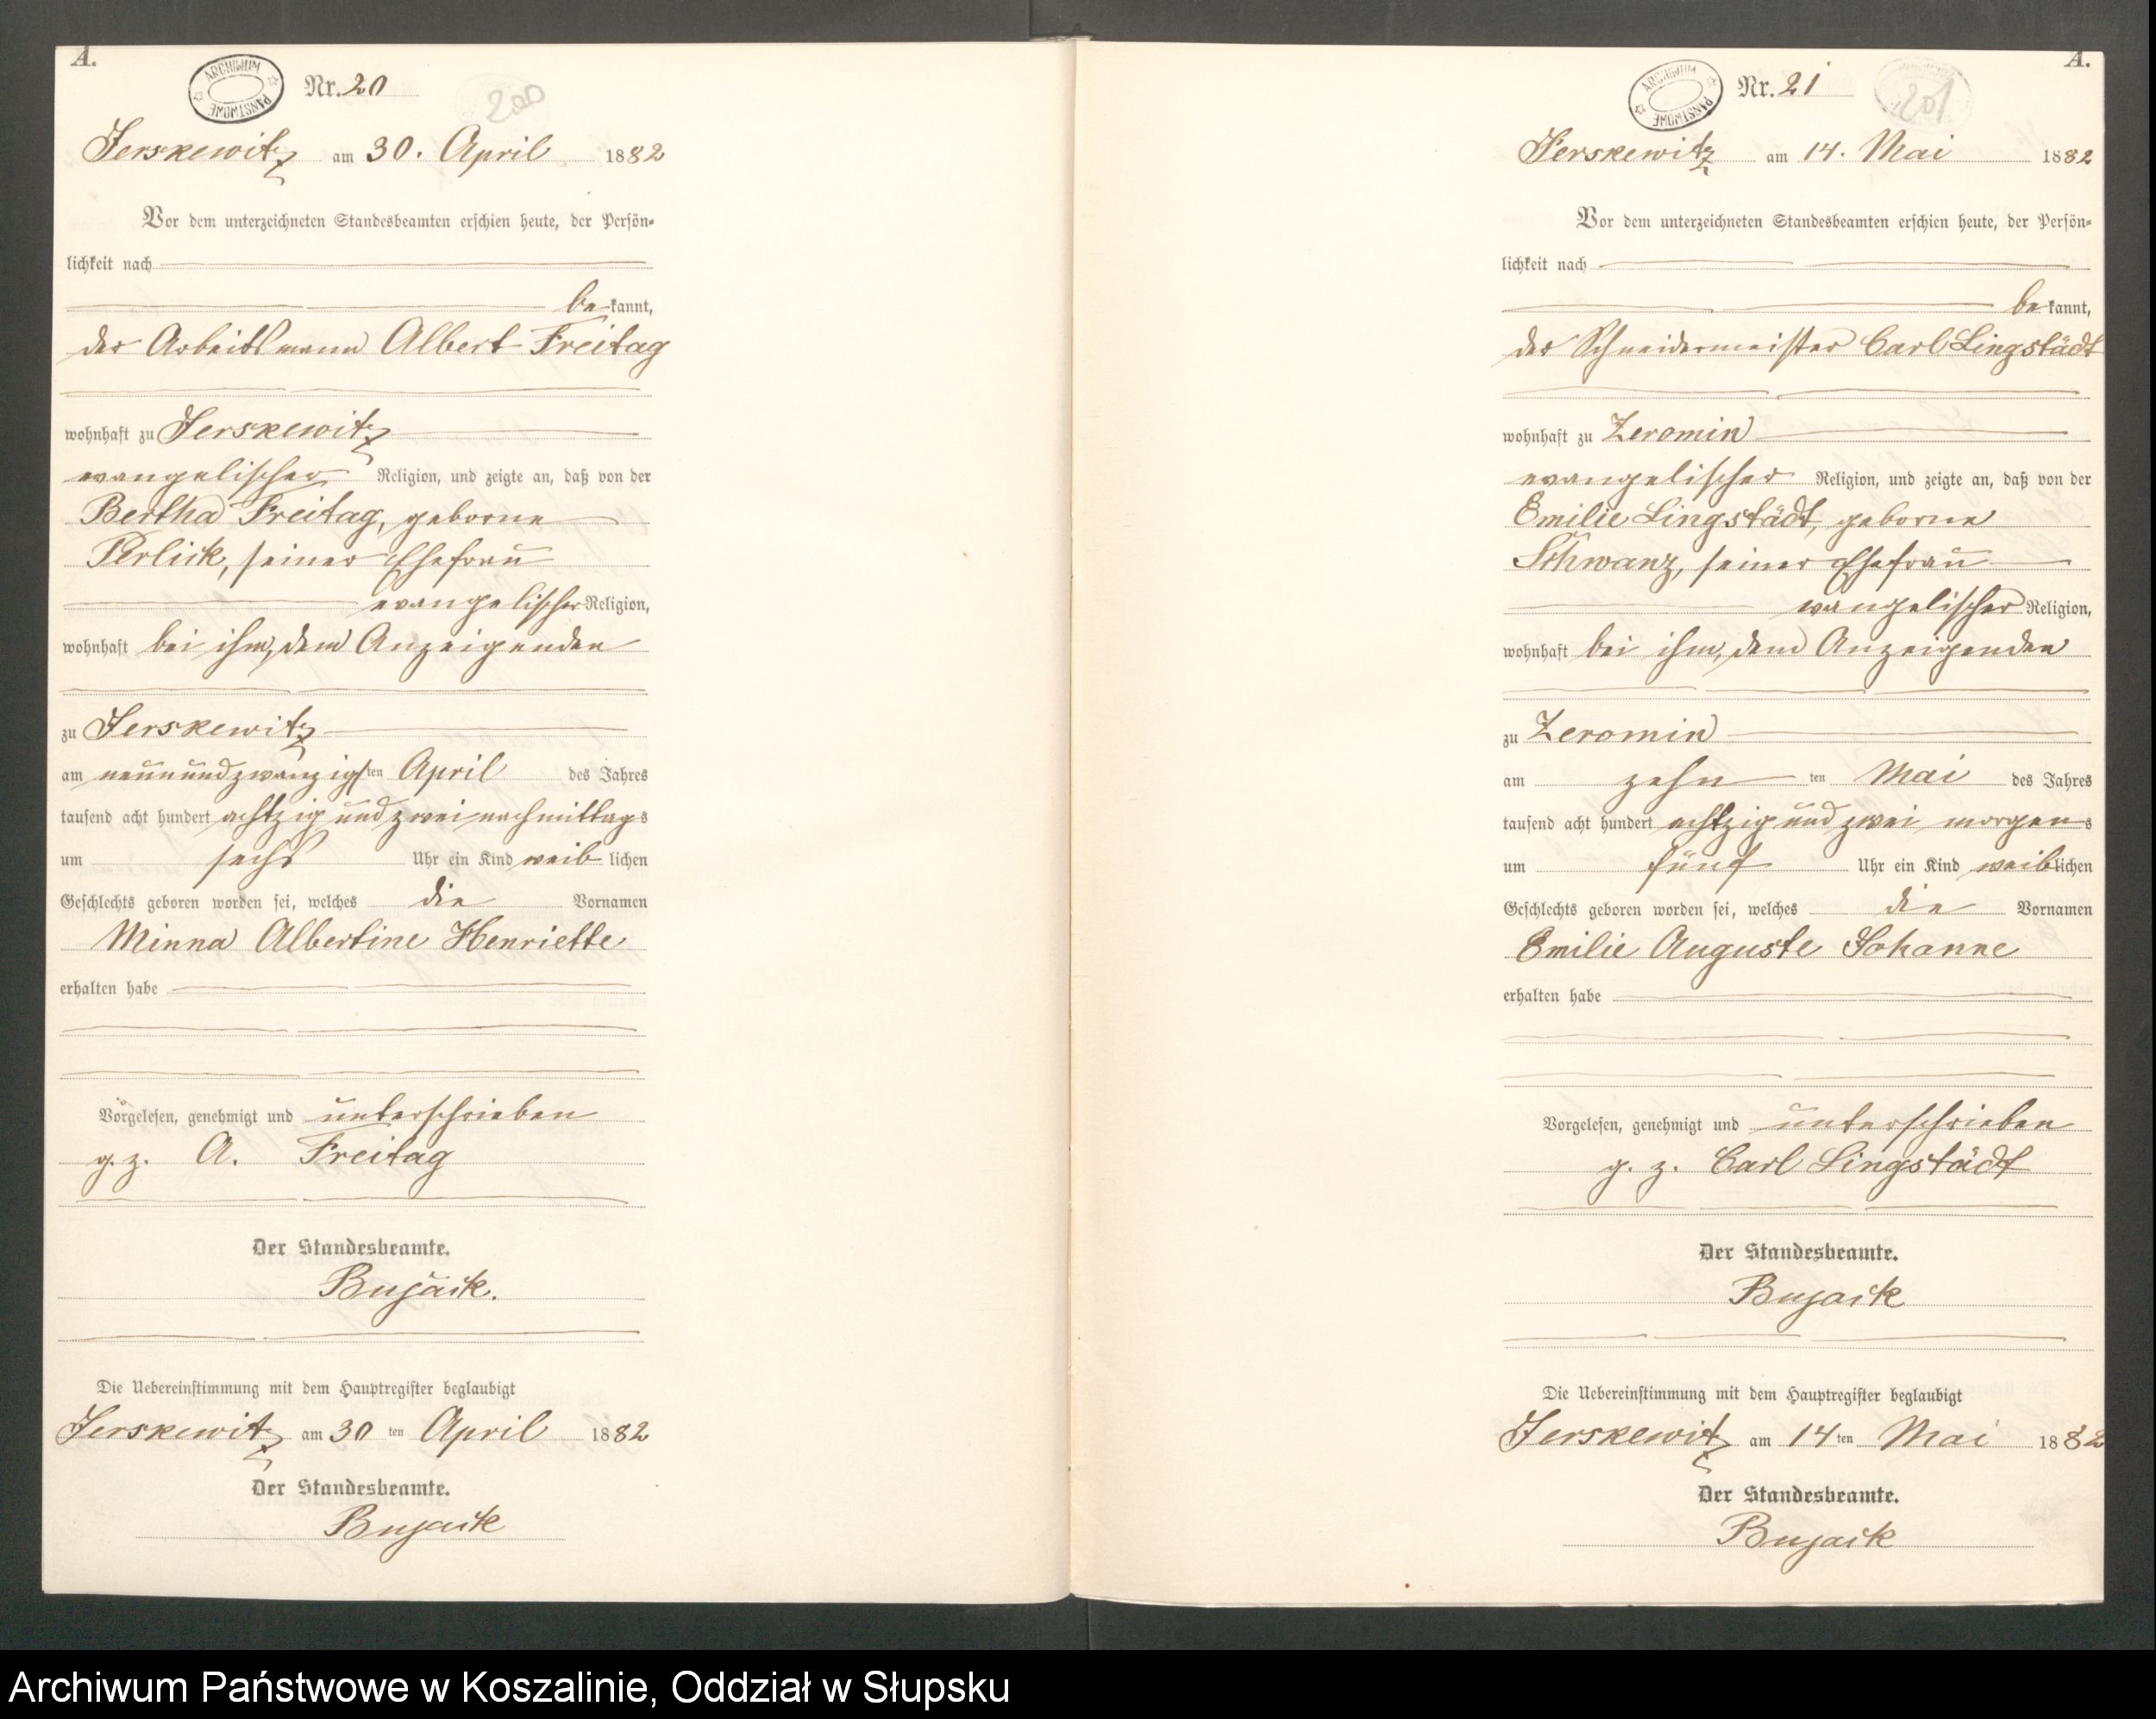 A.
ARCHIWUM PAŃSTWOWE
Nr. 20
200
Jerskewitz am 30. April 1882
Vor dem unterzeichneten Standesbeamten erschien heute, der Persön-
lichkeit nach
be kannt,
der Arbeitsmann Albert Freitag
wohnhaft zu Jerskewitz
evangelischer Religion, und zeigte an, daß von der
Bertha Freitag, geborne
Perlick, seiner Ehefrau
evangelischer Religion,
wohnhaft bei ihm, dem Anzeigenden
zu Jerskewitz
am neunundzwanzigsten April des Jahres
tausend acht hundert achtzig und zwei nachmittags
um sechs Uhr ein Kind weib lichen
Geschlechts geboren worden sei, welches die Vornamen
Minna Albertine Henriette
erhalten habe
Vorgelesen, genehmigt und unterschrieben
g. z. A. Freitag
Der Standesbeamte.
Bujack.
Die Uebereinstimmung mit dem Hauptregister beglaubigt
Jerskewitz am 30 ten April 1882
Der Standesbeamte.
Bujack
A.
ARCHIWUM PAŃSTWOWE
Nr. 21
201
Jerskewitz am 14. Mai 1882
Vor dem unterzeichneten Standesbeamten erschien heute, der Persön-
lichkeit nach
be kannt,
der Schneidermeister Carl Lingstädt
wohnhaft zu Zeromin
evangelischer Religion, und zeigte an, daß von der
Emilie Lingstädt, geborne
Schwanz, seiner Ehefrau
evangelischer Religion,
wohnhaft bei ihm, dem Anzeigenden
zu Zeromin
am zehn ten Mai des Jahres
tausend acht hundert achtzig und zwei morgens
um fünf Uhr ein Kind weiblichen
Geschlechts geboren worden sei, welches die Vornamen
Emilie Auguste Johanne
erhalten habe
Vorgelesen, genehmigt und unterschrieben
g. z. Carl Lingstädt
Der Standesbeamte.
Bujack
Die Uebereinstimmung mit dem Hauptregister beglaubigt
Jerskewitz am 14 ten Mai 1882
Der Standesbeamte.
Bujack
Archiwum Państwowe w Koszalinie, Oddział w Słupsku